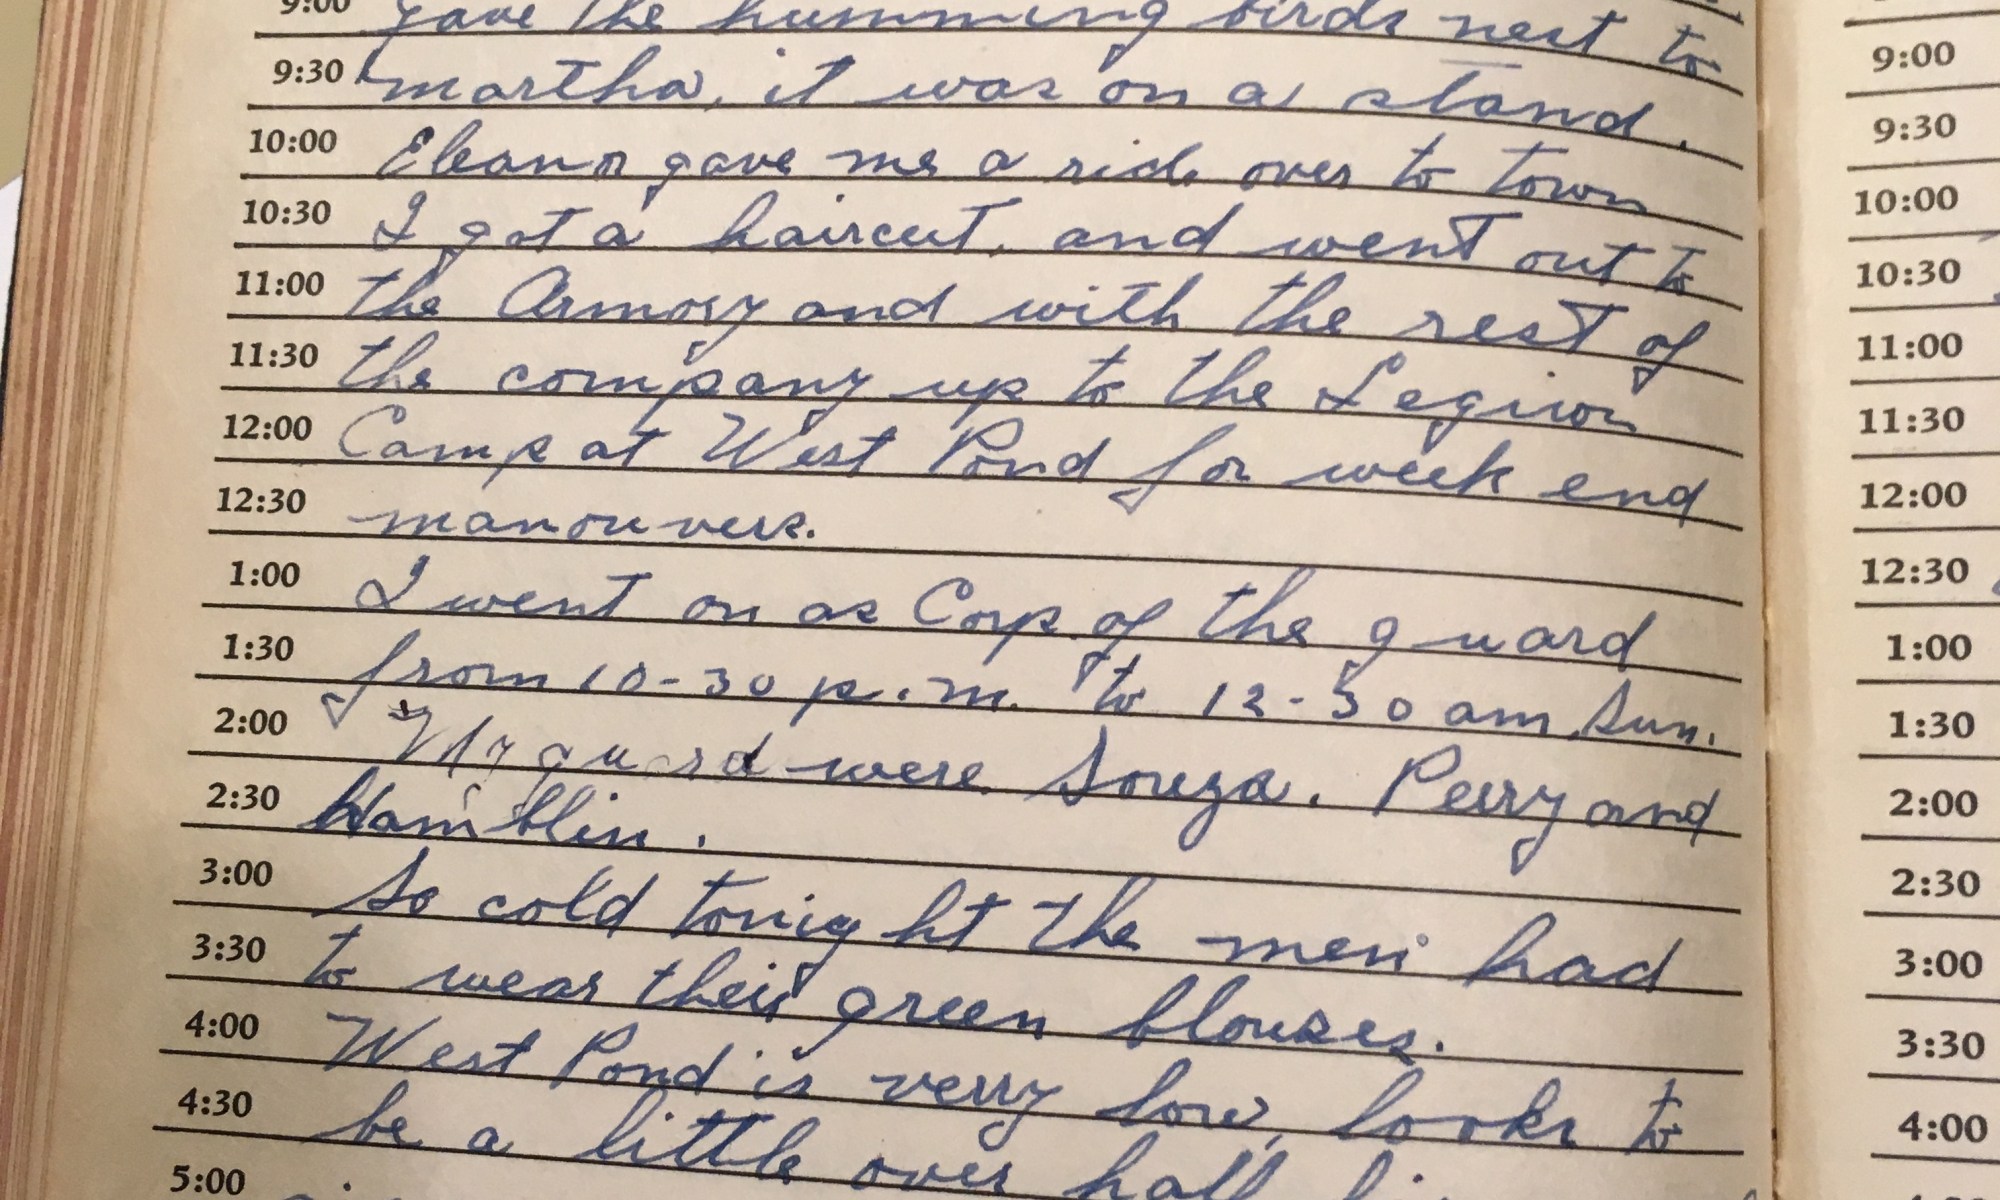 9:00 gave the humming birds nest to
9:30 martha, it was on a stand.
10:00 Eleanor gave me a ride over to town
10:30 I got a haircut, and went out to
11:00 the Armory and with the rest of
11:30 the company up to the Legion
12:00 Camp at West Pond for week end
12:30 manouvers.
1:00 I went on as Corp. of the guard
1:30 from 10-30 p.m. to 12-30 am Sun.
2:00 My guard were Souza. Perry and
2:30 Hamblin.
3:00 So cold tonight the men had
3:30 to wear their green blouses.
4:00 West Pond is verry low, looks to
4:30 be a little over half
5:00
9:00
9:30
10:00
10:30
11:00
11:30
12:00
12:30
1:00
1:30
2:00
2:30
3:00
3:30
4:00